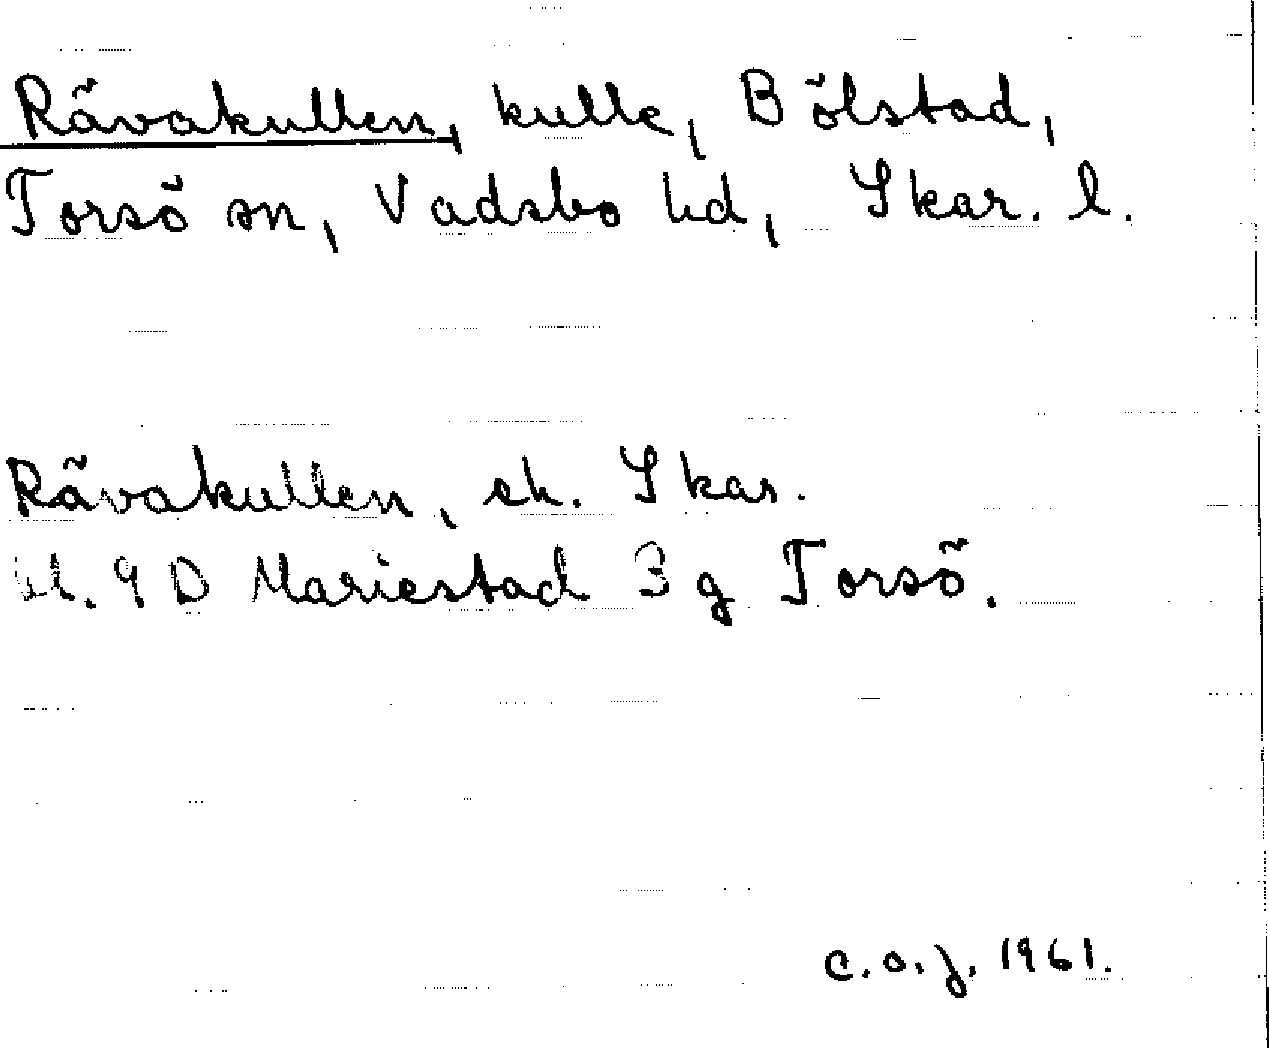 Rävakullen, kulle, Bölstad,
Torsö sn, Vadsbo hd, Skar. l.
Rävakullen, ek. Skar.
bl. 9 D Mariestad 3 g Torsö.
C.O.J. 1961.